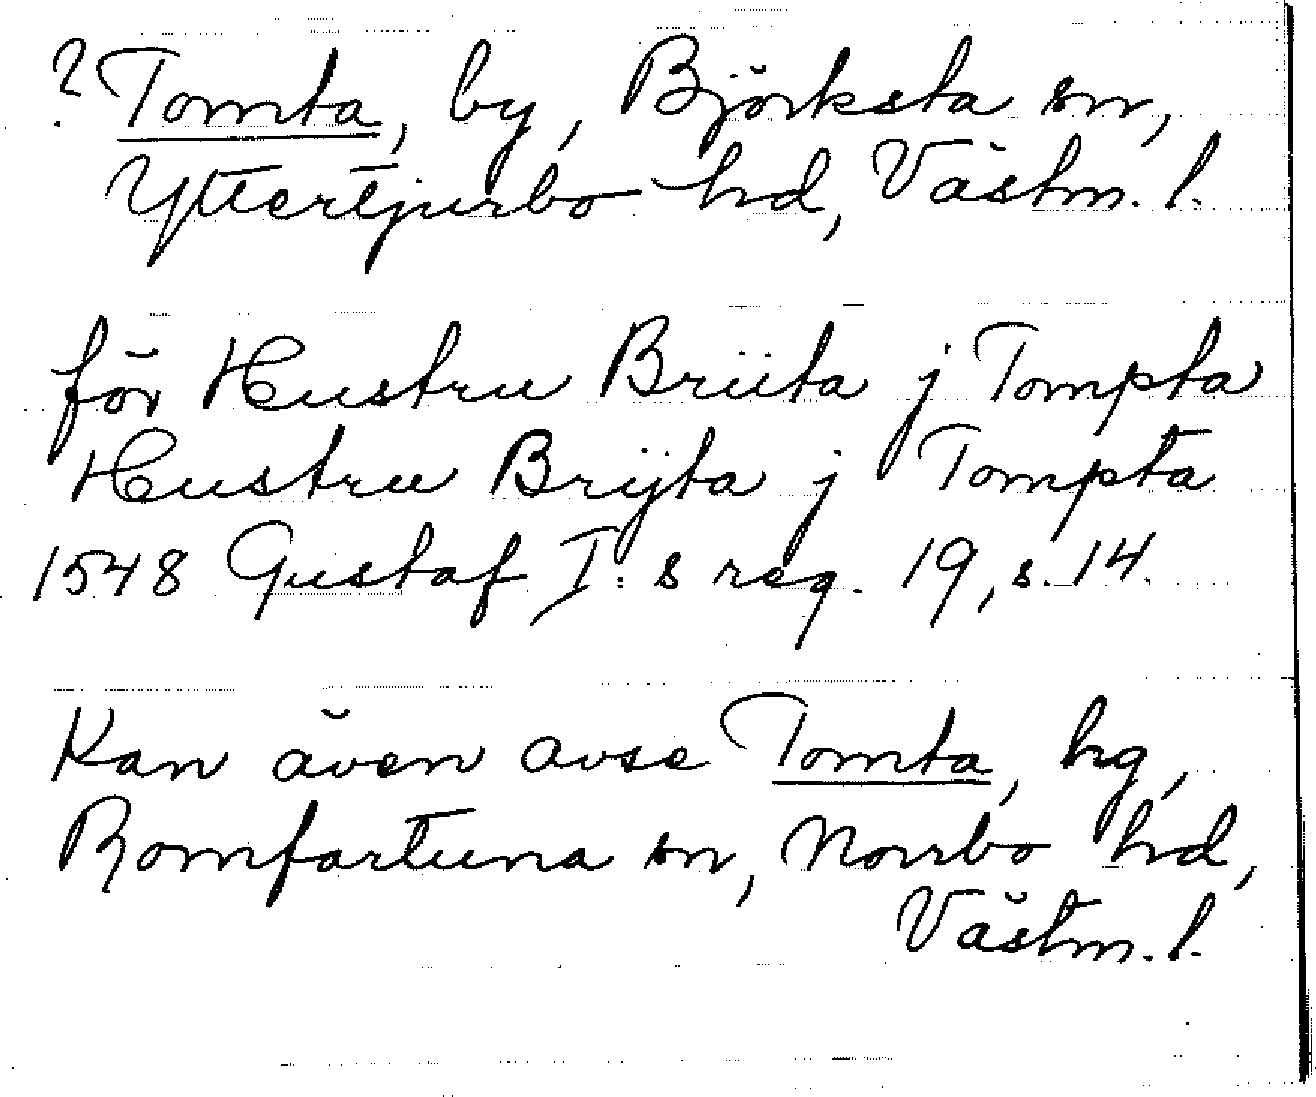 ? Tomta, by, Björksta sn,
Yttertjurbo hd, Västm. l.
för Hustru Briita j Tompta
Hustru Brÿta j Tompta
1548 Gustaf I:s reg. 19, s. 14.
Kan även avse Tomta, hg,
Romfartuna sn, Norrbo hd,
Västm. l.